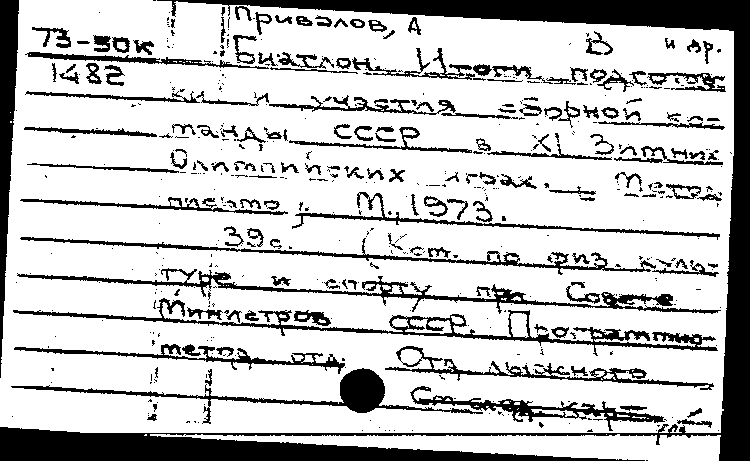 Привалов, А В и др.
73-50к
Биатлон. Итоги подготов-
1482
ки и участия сборной ко-
манды СССР в XI Зимних
Олимпийских играх. Метод
письмо; М., 1973.
39с. (Ком. по физ. куль-
туре и спорту при Совете
Министров СССР. Программно-
метод. отд. Отд лыжного
См след. кар-